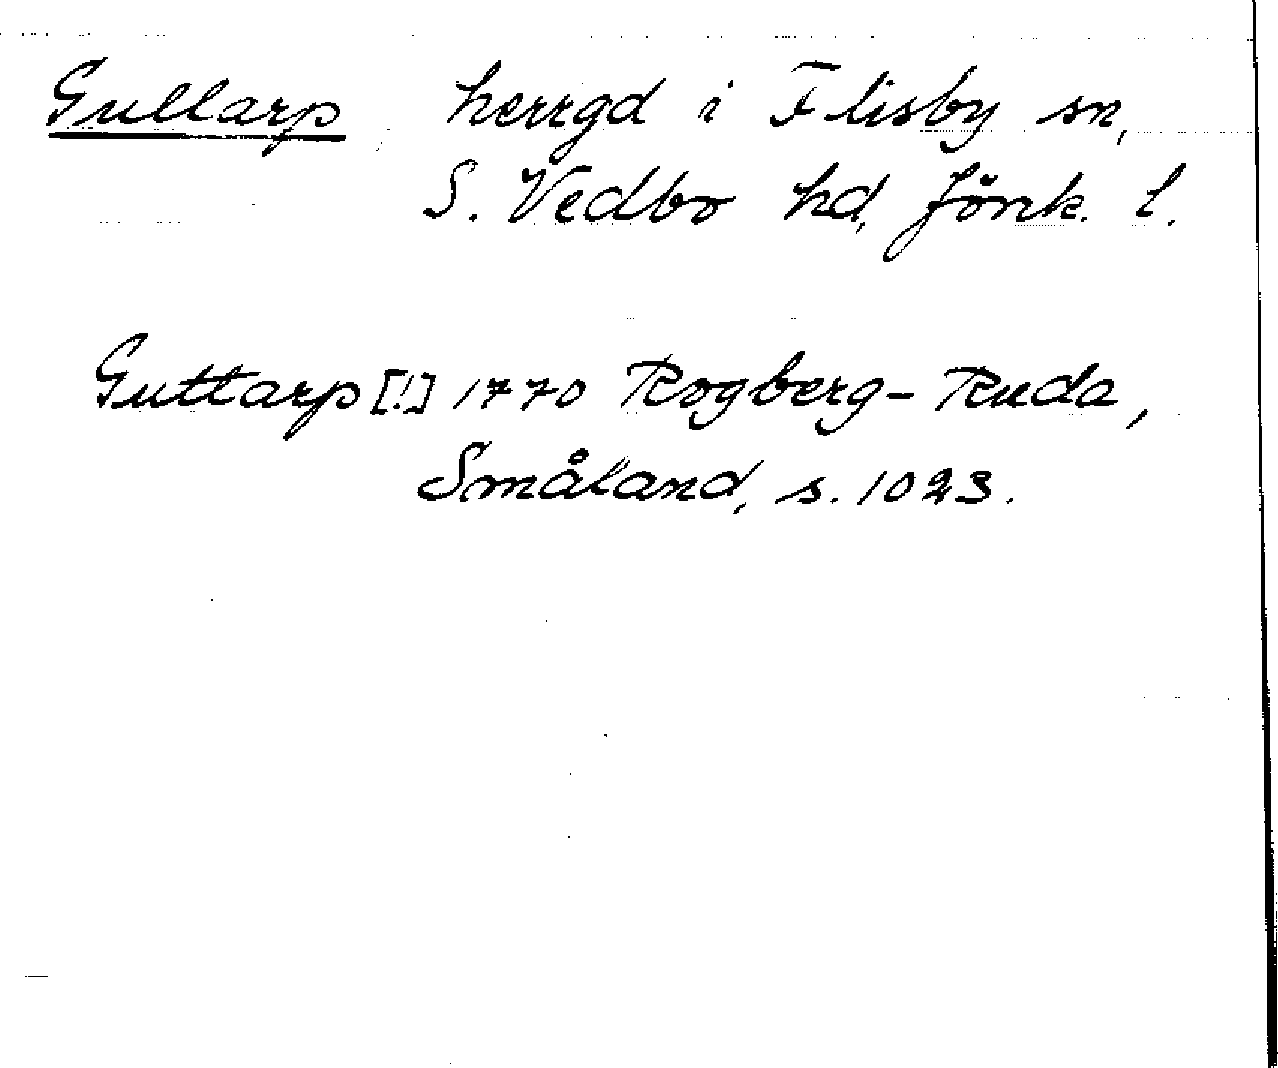 Gullarp herrgd i Flisby sn,
S. Vedbo hd, Jönk. l.
Guttarp [!] 1770 Rogberg-Ruda,
Småland, s. 1023.